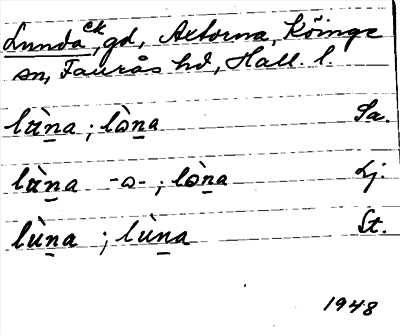 Lunda ek, gd, Axtorna, Köinge
sn, Faurås hd, Hall. l.
lɯ̀na ; lə̀na Sa.
lɯ̀na -ə- ; lə̀na Lj.
lùna ; lùna St.
1948